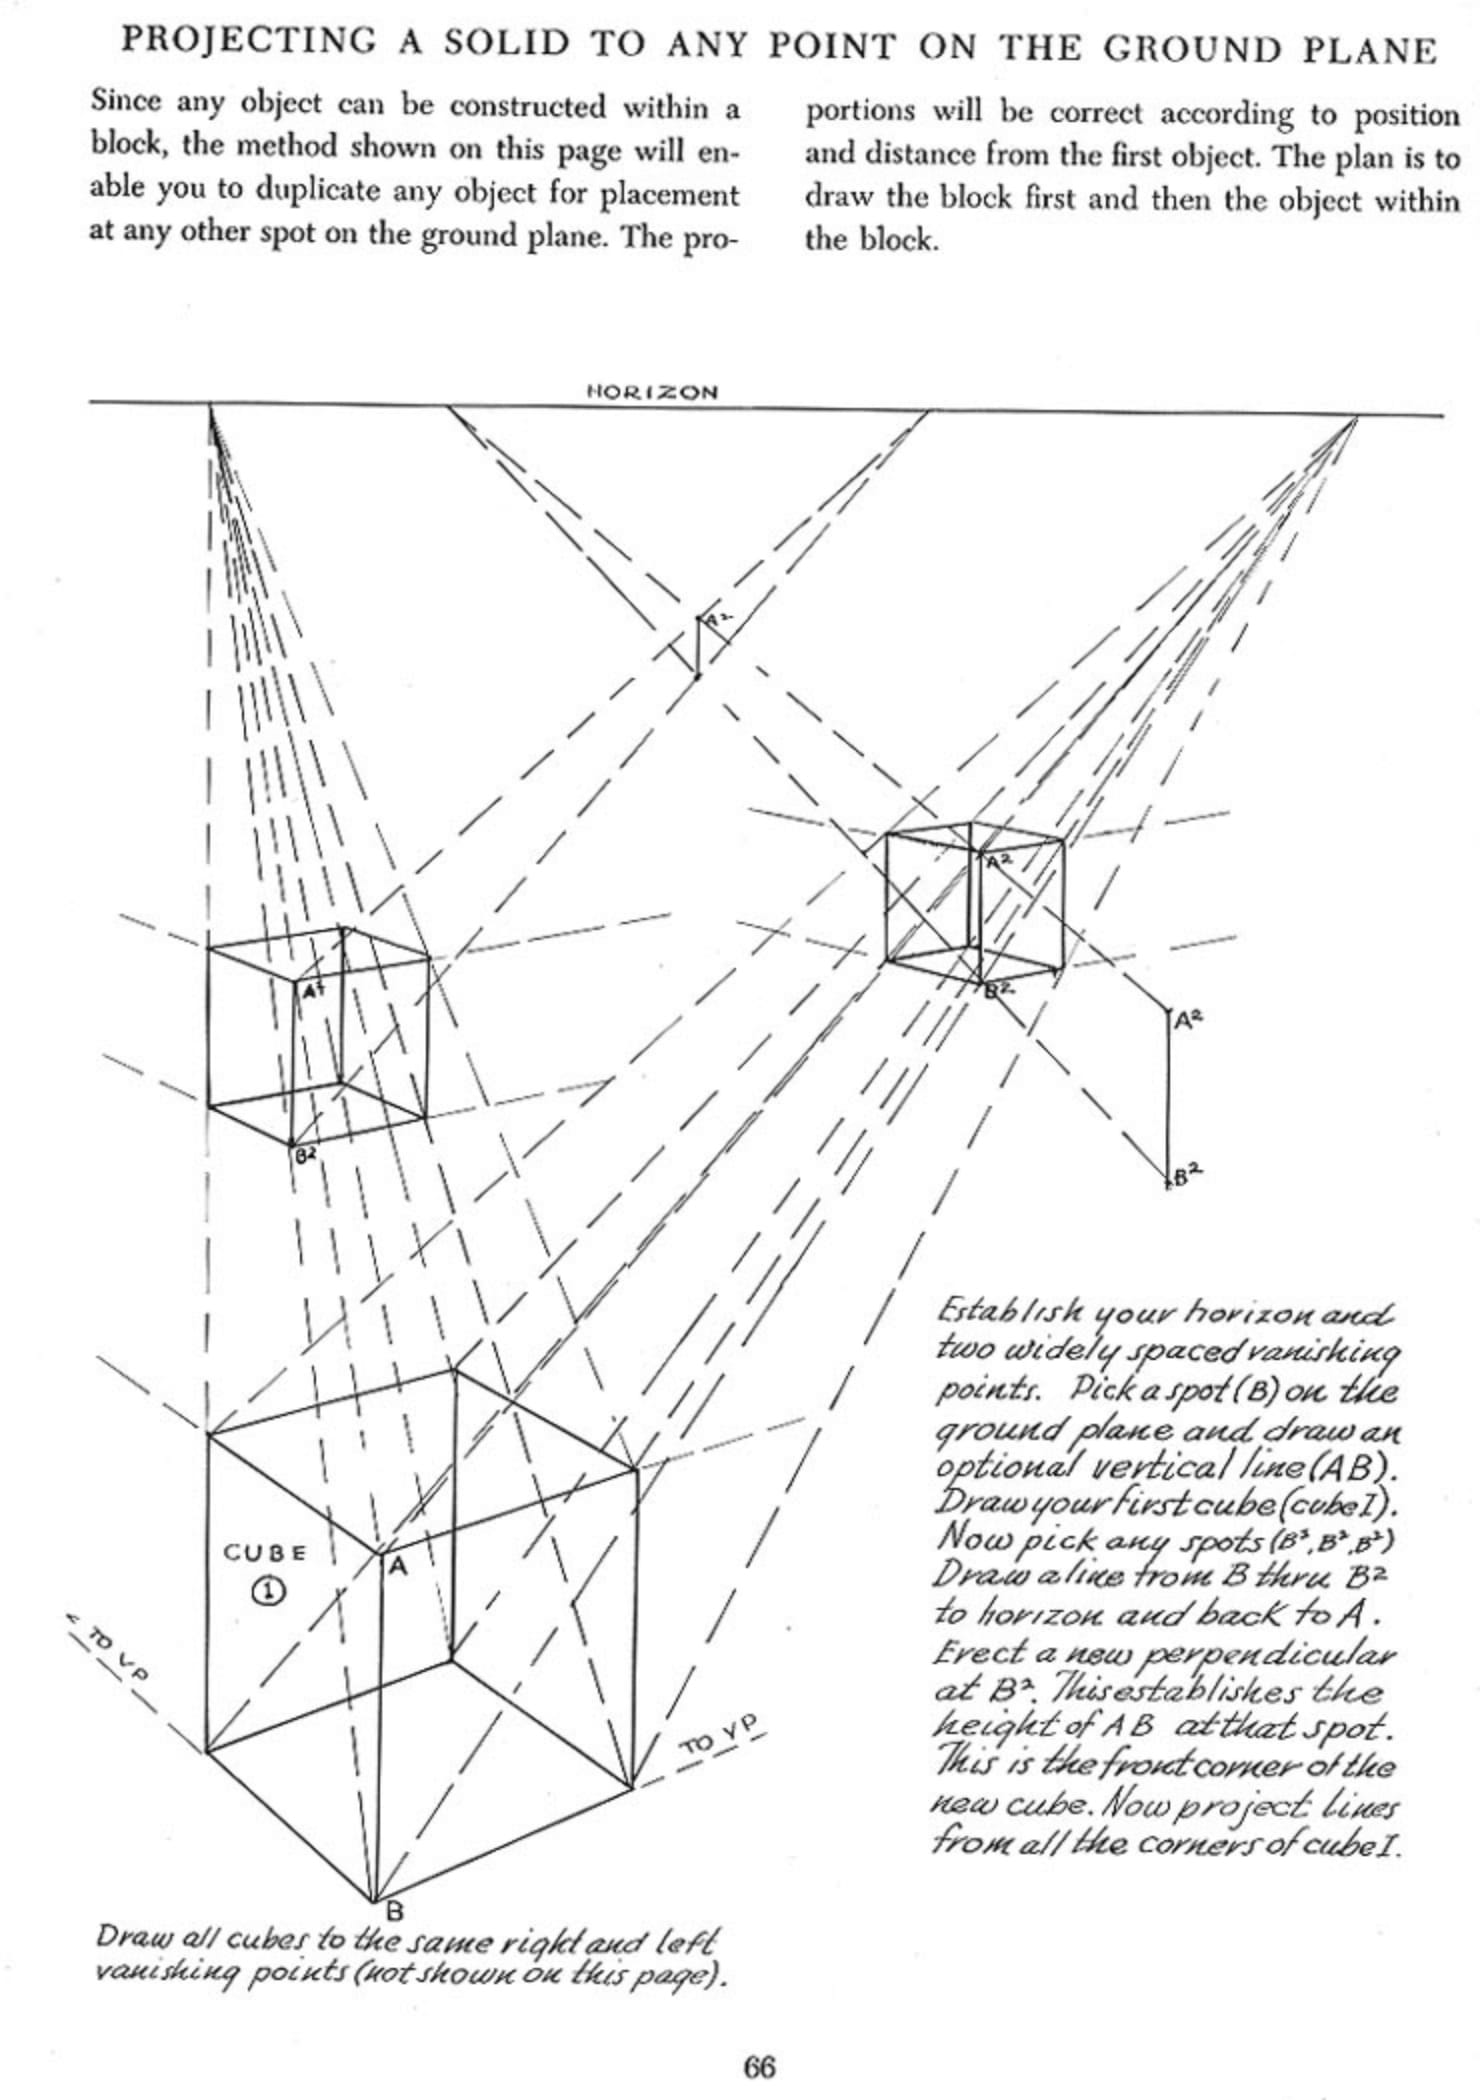 PROJECTING A SOLID TO ANY POINT ON THE GROUND PLANE
Since any object can be constructed within a
block, the method shown on this page will en-
able you to duplicate any object for placement
at any other spot on the ground plane. The pro-
portions will be correct according to position
and distance from the first object. The plan is to
draw the block first and then the object within
the block.
HORIZON
A²
A²
B²
A²
B²
A²
B²
CUBE
①
A
B
< TO VP
TO VP
Establish your horizon and
two widely spaced vanishing
points. Pick a spot (B) on the
ground plane and draw an
optional vertical line (AB).
Draw your first cube (cube I).
Now pick any spots (B², B², B²)
Draw a line from B thru B²
to horizon and back to A.
Erect a new perpendicular
at B². This establishes the
height of AB at that spot.
This is the front corner of the
new cube. Now project lines
from all the corners of cube I.
Draw all cubes to the same right and left
vanishing points (not shown on this page).
66